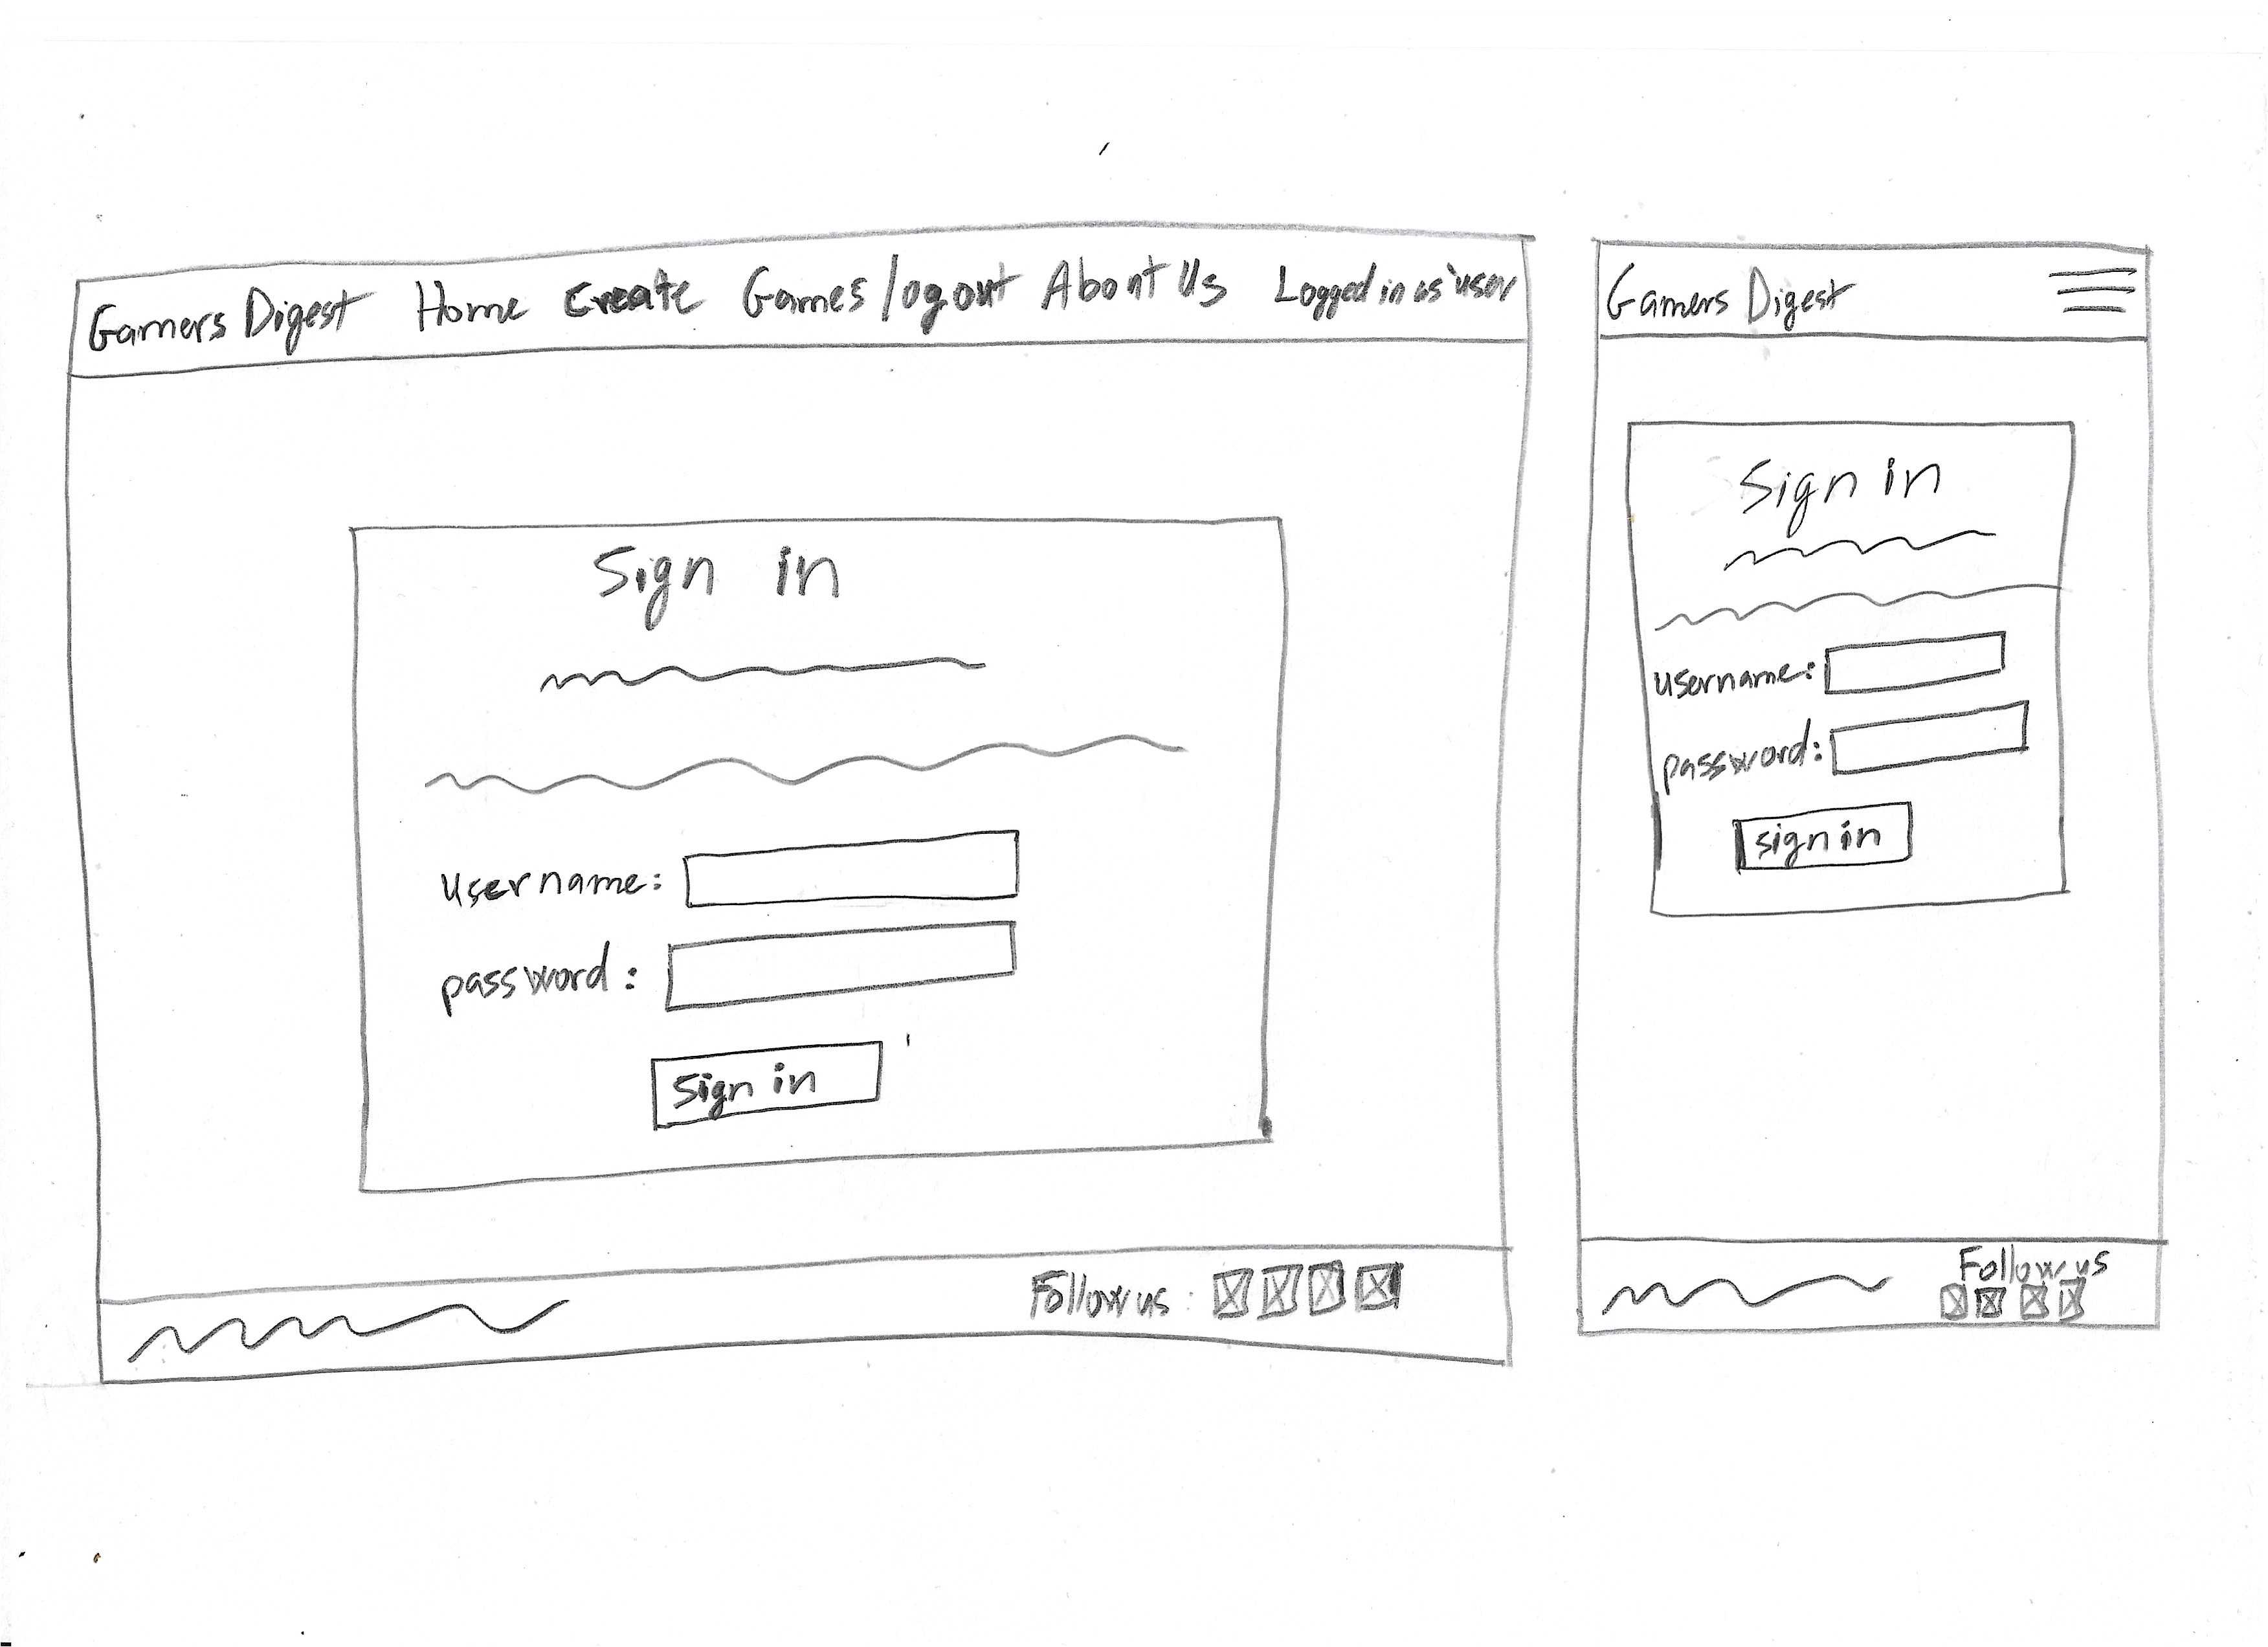 Gamers Digest Home Create Games logout About Us Logged in as 'user'
Sign in
username:
password:
Sign in
Follow us :
Gamers Digest
Sign in
username:
password:
sign in
Follow us